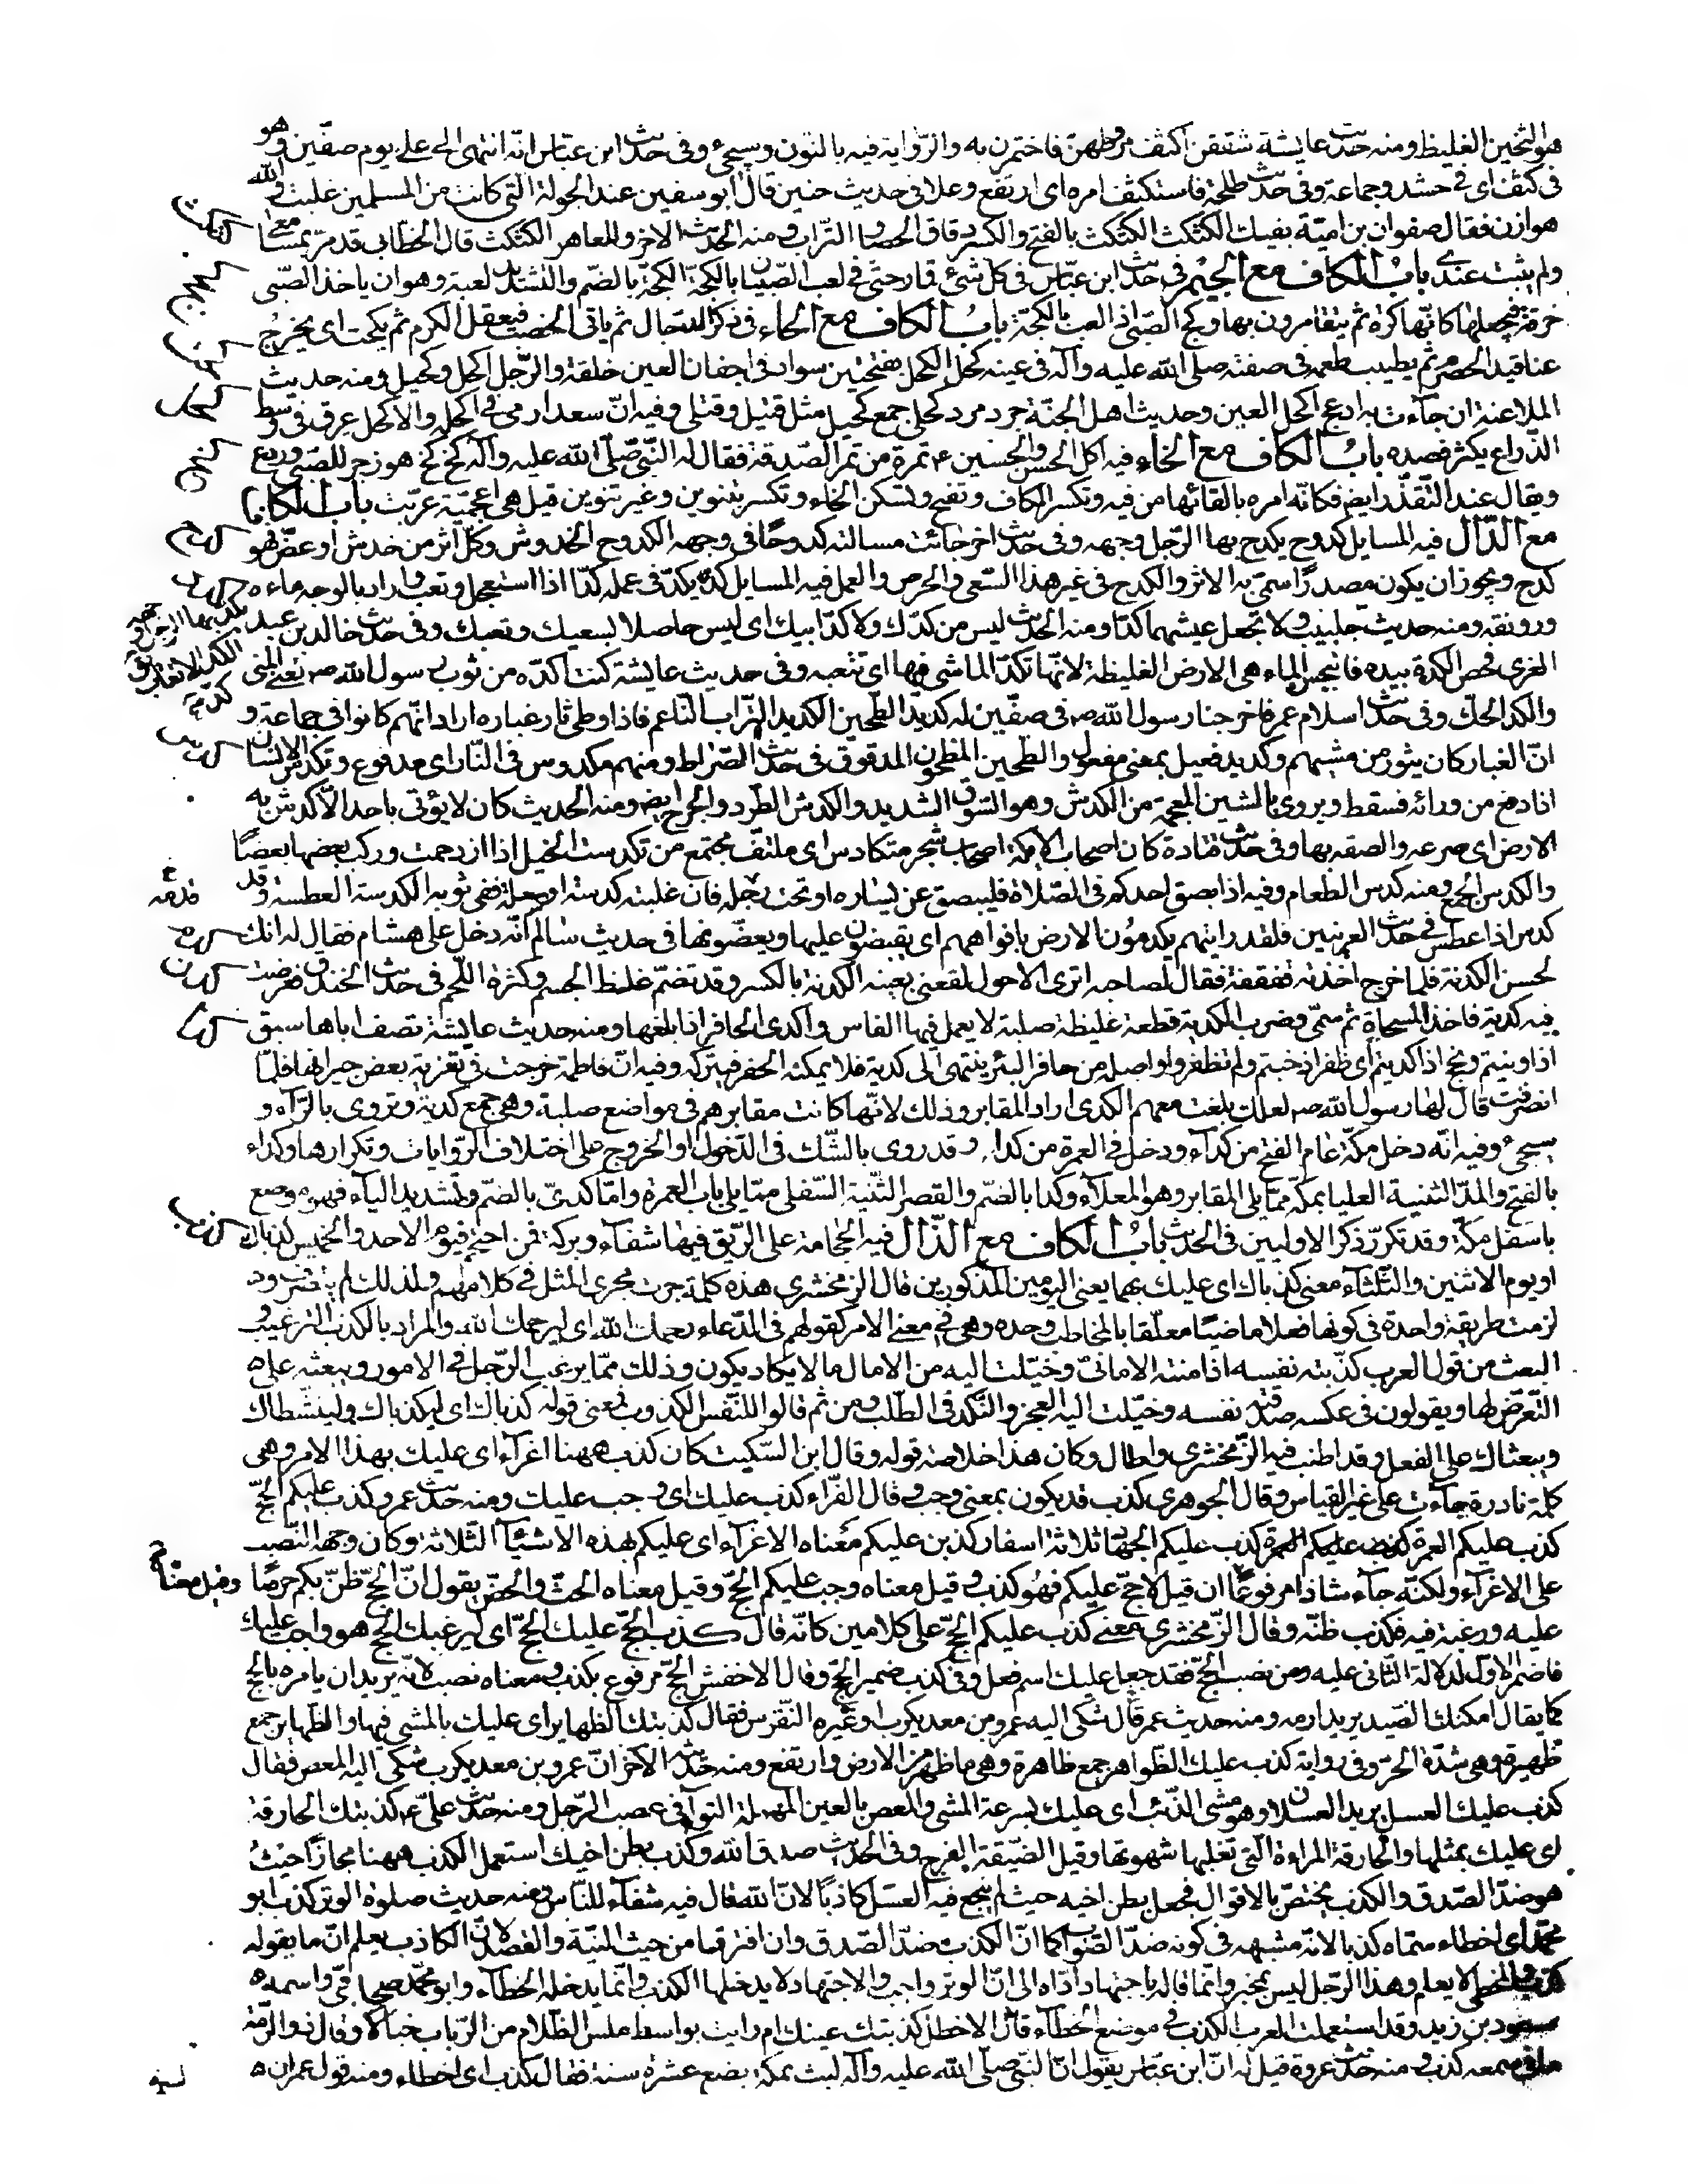 هو الثخين الغليظ ومنه حديث عايشة شققن اكثف مروطهن فاختمرن به والرواية فيه بالنون وسيجيء وفي حديث ابن عباس انه انتهى الى علي يوم صفين وهو
في كثف اى في حشد وجماعة وفي حديث طلحة فاستكثف امره اى ارتفع وعلا في حديث حنين قال ابو سفين عند الجولة التي كانت من المسلمين غلبت والله
هوازن فقال صفوان بن امية بفيك الكثكث الكثكث بالفتح والكسر دقاق الحصا والتراب ومنه الحديث الاخر وللعاهر الكثكث قال الخطابي قد مر بمسامعى
ولم يثبت عندى باب الكاف مع الجيم في حديث ابن عباس في كل شيء قمار حتى في لعب الصبيان بالكجة الكجة بالضم والتشديد لعبة وهو ان ياخذ الصبي
خرقة فيجعلها كانها كرة ثم يتقامرون بها وكج الصبي اذا لعب بالكجة باب الكاف مع الحاء في ذكر الدجال ثم ياتي الخصب فيعقل الكرم ثم يكحب اى يخرج
عناقيد الحصرم ثم يطيب طعمه في صفته صلى الله عليه وآله في عينه كحل الكحل بفتحتين سواد في اجفان العين خلقة والرجل اكحل وكحيل ومنه حديث
الملاعنة ان جاءت به ادعج اكحل العين وحديث اهل الجنة جرد مرد كحلى جمع كحيل مثل قتيل وقتلى وفيه ان سعدا رمى في اكحله والاكحل عرق في وسط
الذراع يكثر فصده باب الكاف مع الخاء فيه اكل الحسن والحسين ع تمرة من تمر الصدقة فقال له النبي صلى الله عليه وآله كخ كخ هو زجر للصبي وردع
ويقال عند التقذر ايضا فكانه امره بالقائها من فيه وتكسر الكاف وتفتح وتسكن الخاء وتكسر بتنوين وغير تنوين قيل هى اعجمية عربت باب الكاف
مع الدال فيه المسايل كدوح يكدح بها الرجل وجهه وفي حديث اخر جائت مسالته كدوحا في وجهه الكدوح الخدوش وكل اثر من خدش او عض فهو
كدح ويجوز ان يكون مصدرا سمى به الاثر والكدح في غير هذا السعى والحرص والعمل فيه المسايل كد يكد في عمله كدا اذا استعجل وتعب واراد بالوجه ماءه
ورونقه ومنه حديث جليبيب ولا تجعل عيشهما كدا ومنه الحديث ليس من كدك ولا كد ابيك اى ليس حاصلا بسعيك وتعبك وفي حديث خالد بن عبد
العزى فحص الكدة بيده فانبجس الماء هى الارض الغليظة لانها تكد الماشى فيها اى تتعبه وفي حديث عايشة كنت اكده من ثوب رسول الله ص يعنى المنى
والكد الحك وفي حديث اسلام عمر فاخرجنا رسول الله ص في صفين له كديد الطحين الكديد التراب الناعم فاذا وطئ ثار غباره اراد انهم كانوا في جماعة و
ان الغبار كان يثور من مشيهم وكديد فعيل بمعنى مفعول والطحين المطحون المدقوق في حديث الصراط ومنهم مكدوس في النار اى مدفوع وتكدس الانسان
اذا دفع من ورائه فسقط ويروى بالشين المعجمة من الكدش وهو السوق الشديد والكدش الطرد والجرح ايضا ومنه الحديث كان لا يؤتى باحد الا اكدس به
الارض اى صرعه والصقه بها وفي حديث قتادة كان اصحاب الايكة اصحاب شجر متكادس اى ملتف مجتمع من تكدست الخيل اذا ازدحمت وركب بعضها بعضا
والكدس الجمع ومنه كدس الطعام وفيه اذا بصق احدكم في الصلاة فليبصق عن يساره او تحت رجله فان غلبته كدسة او سعلة ففى ثوبه الكدسة العطسة وقد
كدس اذا عطس في حديث العرنيين فلقد رايتهم يكدمون الارض بافواههم اى يقبضون عليها ويعضونها في حديث سالم انه دخل على هشام فقال له انك
لحسن الكدنة فلما خرج اخذته قفقفة فقال لصاحبه اترى الاحول لقعنى بعينه الكدنة بالكسر وقد تضم غلظ الجسم وكثرة اللحم في حديث الخندق فعرضت
فيه كدية فاخذ المسحاة ثم سمى وضرب الكدية قطعة غليظة صلبة لا يعمل فيها الفاس واكدى الحافر اذا بلغها ومنه حديث عايشة تصف اباها سبق
اذا ونيتم ونجح اذا كديتم اى ظفر اذ خبتم ولم تظفروا واصله من حافر البئر ينتهى الى كدية فلا يمكنه الحفر فيتركه وفيه ان فاطمة خرجت في تعزية بعض جيرانها فلما
انصرفت قال لها رسول الله ص لعلك بلغت معهم الكدى اراد المقابر وذلك لانها كانت مقابرهم في مواضع صلبة وهى جمع كدية وتروى بالراء و
سيجيء وفيه انه دخل مكة عام الفتح من كداء ودخل في العمرة من كدا وقد روى بالشك في الدخول او الخروج على اختلاف الروايات وتكرارها وكداء
بالفتح والمد الثنية العليا بمكة مما يلى المقابر وهو المعلاء وكدا بالضم والقصر الثنية السفلى مما يلى باب العمرة واما كدى بالضم وتشديد الياء فهو موضع
باسفل مكة وقد تكرر ذكر الاوليين في الحديث باب الكاف مع الذال فيه الحجامة على الريق فيها شفاء وبركة فمن احتجم فيوم الاحد والخميس كذباك
او يوم الاثنين والثلثاء معنى كذباك اى عليك بهما يعنى اليومين المذكورين قال الزمخشرى هذه كلمة جرت مجرى المثل في كلامهم ولذلك لم يتصرف و
لزمت طريقة واحدة في كونها فعلا ماضيا معلقا بالمخاطب وحده وهى في معنى الامر كقولهم في الدعاء رحمك الله اى ليرحمك الله والمراد بالكذب الترغيب و
البعث من قول العرب كذبته نفسه اذا منته الامانى وخيلت اليه من الامال ما لا يكاد يكون وذلك مما يرغب الرجل في الامور ويبعثه على
التعرض لها ويقولون في عكسه صدقته نفسه وخيلت اليه العجز والنكد في الطلب ومن ثم قالوا للنفس الكذوب فمعنى قوله كذباك اى ليكذباك ولينشطاك
ويبعثاك على الفعل وقد اطنب فيه الزمخشرى واطال وكان هذا خلاصة قوله وقال ابن السكيت كان كذب ههنا اغراء اى عليك بهذا الامر وهى
كلمة نادرة جاءت على غير القياس وقال الجوهرى كذب قد يكون بمعنى وجب وقال الفراء كذب عليك اى وجب عليك ومنه حديث عمر وكذب عليكم الحج
كذب عليكم العمرة كذب عليكم الجهاد ثلاثة اسفار كذبن عليكم معناه الاغراء اى عليكم بهذه الاشياء الثلاثة وكان وجهه النصب
على الاغراء ولكنه جاء شاذا مرفوعا ان قيل لا حج عليكم فهو كذب وقيل معناه وجب عليكم الحج وقيل معناه الحث والحض يقول ان الحج ظن بكم حرصا
عليه ورغبة فيه فكذب ظنه وقال الزمخشرى معنى كذب عليكم الحج على كلامين كانه قال كذب الحج عليك الحج اى ليرغبك الحج هو واجب عليك
فاضمر الاول لدلالة الثانى عليه ومن نصب الحج فقد جعل عليك اسم فعل وفي كذب ضمير الحج وقال الاخفش الحج مرفوع بكذب ومعناه نصب لانه يريد ان يامره بالحج
كما يقال امكنك الصيد يريد ارمه ومنه حديث عمر قال شكى اليه عمرو بن معديكرب او غيره النقرس فقال كذبتك الظهاير اى عليك بالمشى فيها والظهاير جمع
ظهيرة وهى شدة الحر وفي رواية كذب عليك الظواهر جمع ظاهرة وهى ما ظهر من الارض وارتفع ومنه حديثه الآخر ان عمرو بن معديكرب شكى اليه المعص فقال
كذب عليك العسل يريد العسلان وهو مشى الذئب اى عليك بسرعة المشى والمعص بالعين المهملة التواء في عصب الرجل ومنه حديث على ع كذبتك الحارقة
اى عليك بمثلها والحارقة المراءة التي تغلبها شهوتها وقيل الضيقة الفرج وفي الحديث صدق الله وكذب بطن اخيك استعمل الكذب ههنا مجازا حيث
هو ضد الصدق والكذب يختص بالاقوال فجعل بطن اخيه حيث لم ينجع فيه العسل كاذبا لان الله قال فيه شفاء للناس ومنه حديث صلوة الوتر كذب ابو
محمد اى اخطاء سماه كذبا لانه مشبهه في كونه ضد الصواب كما ان الكذب ضد الصدق وان افترقا من حيث النية والقصد لان الكاذب يعلم ان ما يقوله
كذب والمخطى لا يعلم وهذا الرجل ليس بمخبر وانما قاله باجتهاد اداه الى ان الوتر واجب والاجتهاد لا يدخلها الكذب وانما يدخله الخطاء وابو محمد صحابى واسمه
مسعود بن زيد وقد استعملت العرب الكذب في موضع الخطاء قال الاخطل كذبتك عينك ام رايت بواسط غلس الظلام من الرباب خيالا وقال ذو الرمة
ما في سمعه كذب ومنه حديث عروة قيل له ان ابن عباس يقول ان النبي صلى الله عليه وآله لبث بمكة بضع عشرة سنة فقال كذب اى اخطاء ومنه قول عمران